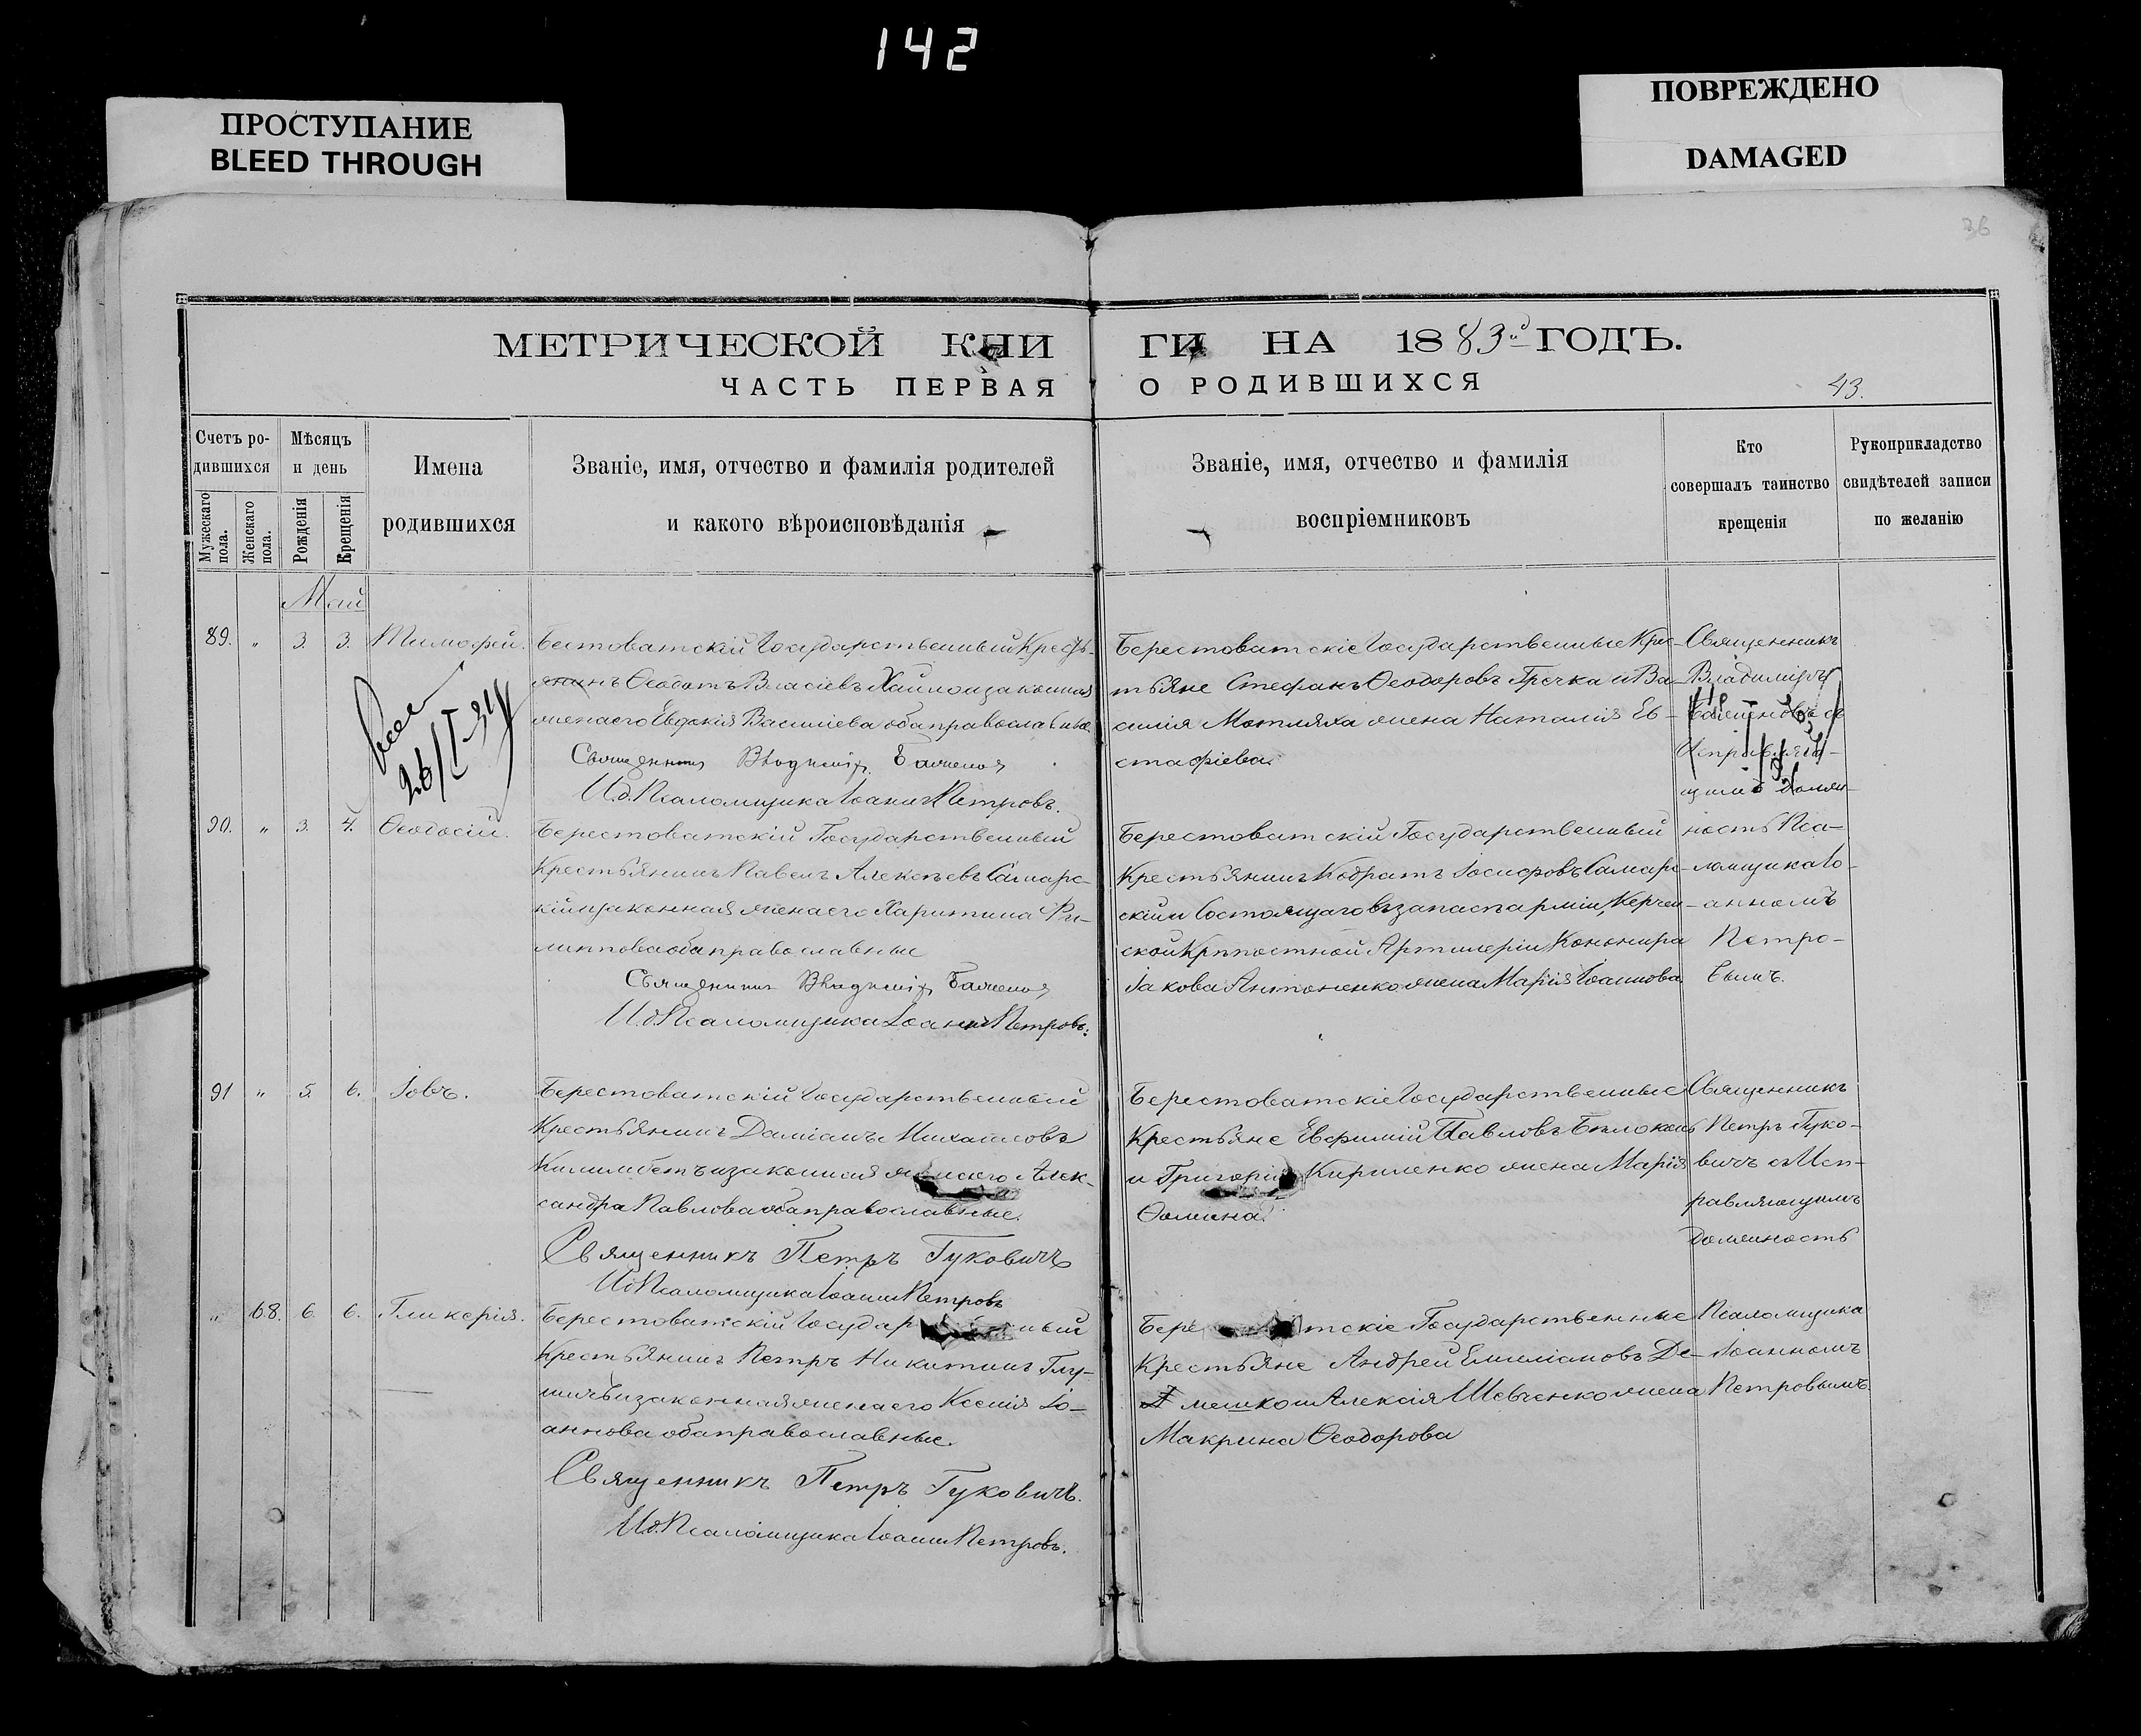 142
ПРОСТУПАНИЕ
BLEED THROUGH
ПОВРЕЖДЕНО
DAMAGED
36
МЕТРИЧЕСКОЙ КНИ
ГИ НА 1883й ГОДЪ.
ЧАСТЬ ПЕРВАЯ
О РОДИВШИХСЯ
43.
Счетъ ро-
дившихся
Мужескаго
пола.
Женскаго
пола.
Мѣсяцъ
и день
Рожденія
Крещенія
Имена
родившихся
Званіе, имя, отчество и фамилія родителей
и какого вѣроисповѣданія
Званіе, имя, отчество и фамилія
воспріемниковъ
Кто
совершалъ таинство
крещенія
Рукоприкладство
свидѣтелей записи
по желанію
Май
89. " 3. 3. Тимофей.
Бестоватскій Государственный Кресть-
янинъ Ѳеодотъ Власіевъ и законная
жена его Евдокія Васильева оба православные
Священникъ Владиміръ Баженовъ
И.д. Псаломщика Іоаннъ Петровъ.
Берестоватскіе Государственные Крес-
тьяне Стефанъ Ѳеодоровъ Гречка и Ва-
силія Мотляха жена Наталія Ев-
стафіева.
Священникъ
Владиміръ
Баженовъ съ
ность Пса-
ломщика Іо-
анномъ
Петро-
вымъ.
26/I-31
90. " 3. 4. Ѳеодосій.
Берестоватскій Государственный
Крестьянинъ Павелъ Алексѣевъ Самарс-
кій и законная жена его Харитина Фи-
липпова оба православные
Священникъ Владиміръ Баженовъ
И.д. Псаломщика Іоаннъ Петровъ.
Берестоватскій Государственный
Крестьянинъ Кодратъ Іосифовъ Самар-
скій и Состоящаго въ запасѣ арміи, Керчен-
ской Крѣпостной Артилеріи Канонира
Іакова Антоненко жена Марія Іоаннова
91 " 5. 6. Іовъ.
Берестоватскій Государственный
Крестьянинъ Даміанъ Михаиловъ
и законная жена его Алек-
сандра Павлова оба православные.
Священникъ Петръ Гуковичъ
И.д. Псаломщика Іоаннъ Петровъ
Берестоватскіе Государственные
Крестьяне Евфимій Павловъ Бѣлоконь
и Григорія Кириленко жена Марія
Ѳомина.
Священникъ
Петръ Гуко-
вичъ съ Исп-
равляющимъ
должность
Псаломщика
Іоанномъ
Петровымъ.
" 68. 6. 6. Гликерія.
Берестоватскій Государ ный
Крестьянинъ Петръ Никитинъ Глу-
и законная жена его Ксенія Іо-
аннова оба православные.
Священникъ Петръ Гуковичъ.
И.д. Псаломщика Іоаннъ Петровъ.
Бере тскіе Государственные
Крестьяне Андрей Емиліановъ Де-
мешко и Алексія Шевченко жена
Макрина Ѳеодорова